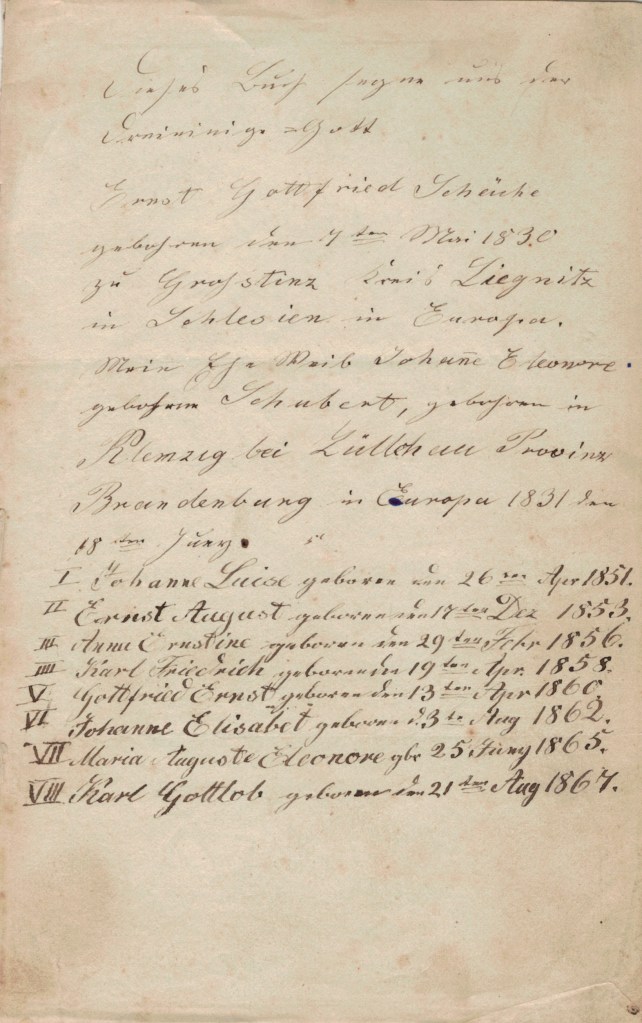 Dieses Buch segne uns der
Dreieinige Gott
Ernst Gottfried Scheuche
gebohren den 7ten Mai 1830
zu Grohstinz Kreis Liegnitz
in Schlesien in Europa.
Mein Ehe Weib Johañe Eleonore
gebohrne Schubert, gebohren in
Klemzig bei Züllchau Provinz
Brandenburg in Europa 1831 den
18ten Juny.
I Johanne Luise geboren den 26ten Apr 1851.
II Ernst August geboren den 17ten Dez 1853.
III Anna Ernstine geboren den 29ten Febr 1856.
IIII Karl Friedrich geboren den 19ten Apr. 1858.
V Gottfried Ernst geboren den 13ten Apr 1860
VI Johanne Elisabet geboren d. 3te Aug 1862.
VII Maria Auguste Eleonore gbr 25 Juny 1865.
VIII Karl Gottlob geboren den 21ten Aug 1867.